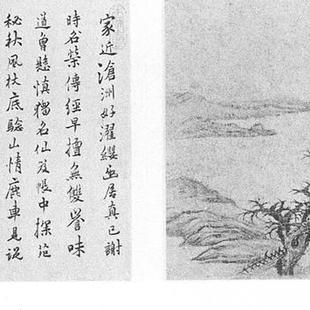 家近滄洲好濯纓幽居真已謝
時榮傳經早擅無雙譽味
道曾懸慎獨名仙帳中探
秘秋風杖底驗山情鹿車見說